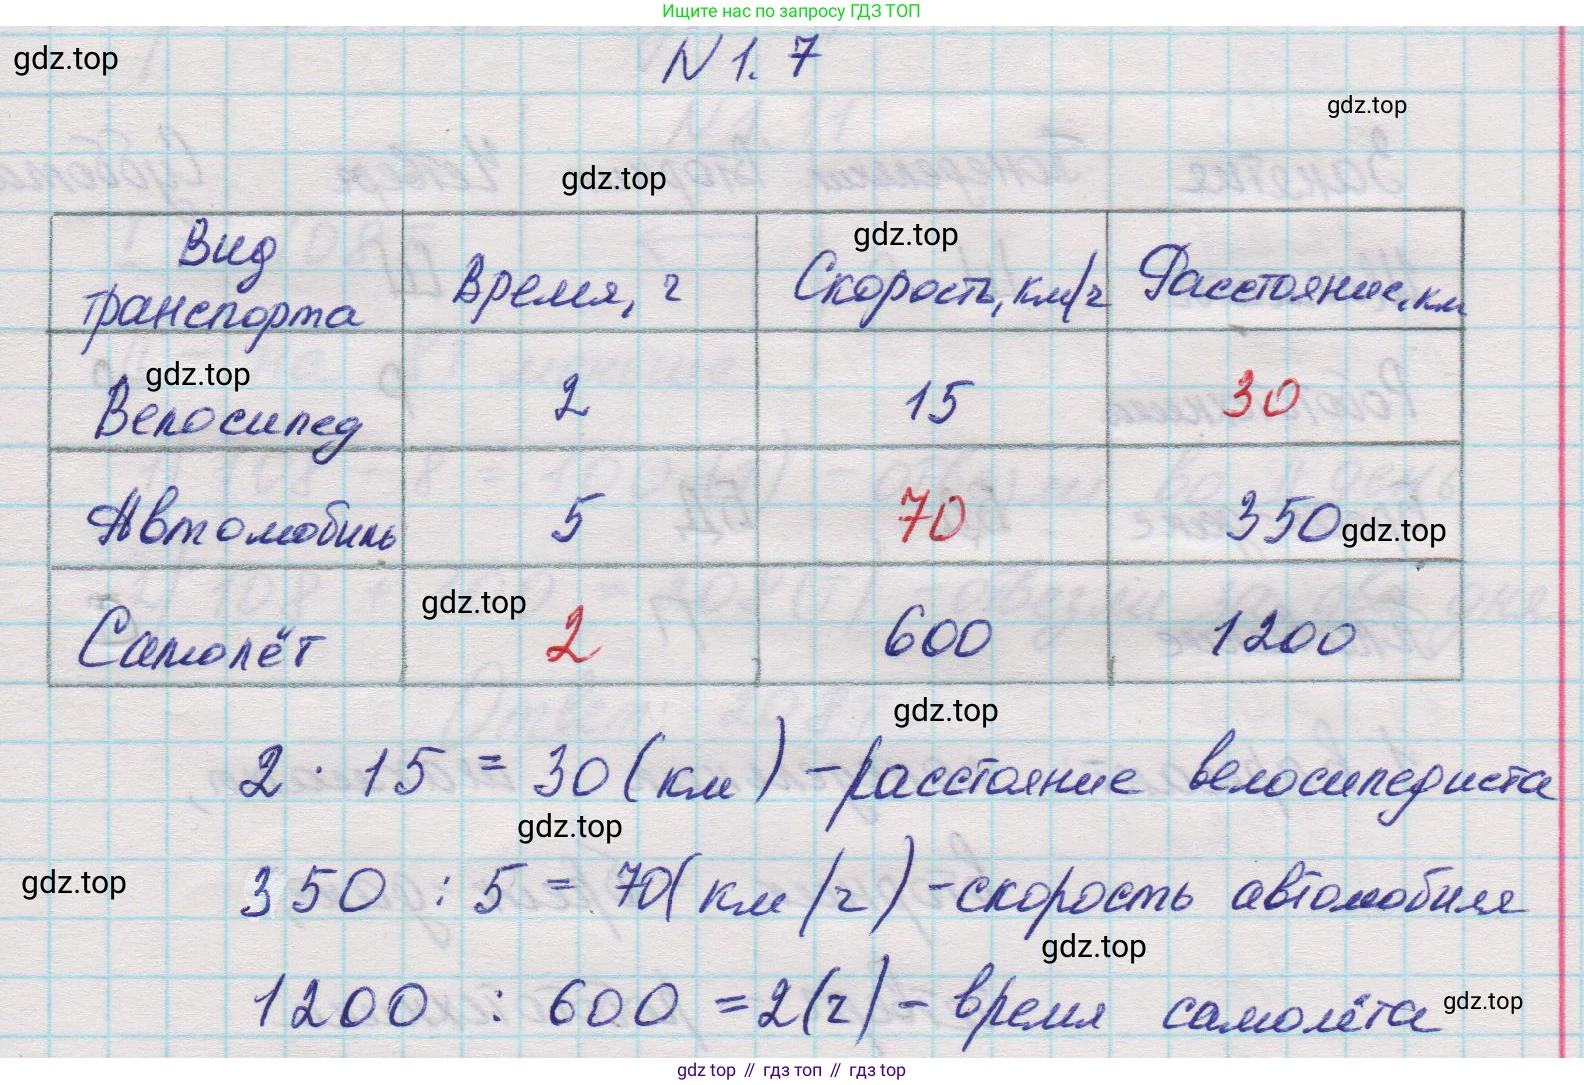 Ищите нас по запросу ГДЗ ТОП
gdz.top
N 1. 7
gdz.top
gdz.top
Вид транспорта Время, г Скорость, км/ч Расстояние, км
gdz.top
gdz.top
Велосипед 2 15 30
Автомобиль 5 70 350
gdz.top
Самолёт 2 600 1200
gdz.top
gdz.top
2 · 15 = 30 (км) - расстояние велосипедиста
gdz.top
350 : 5 = 70 (км/ч) - скорость автомобиля
gdz.top
gdz.top
1200 : 600 = 2 (ч) - время самолёта
gdz.top
gdz top // гдз топ // гдз top